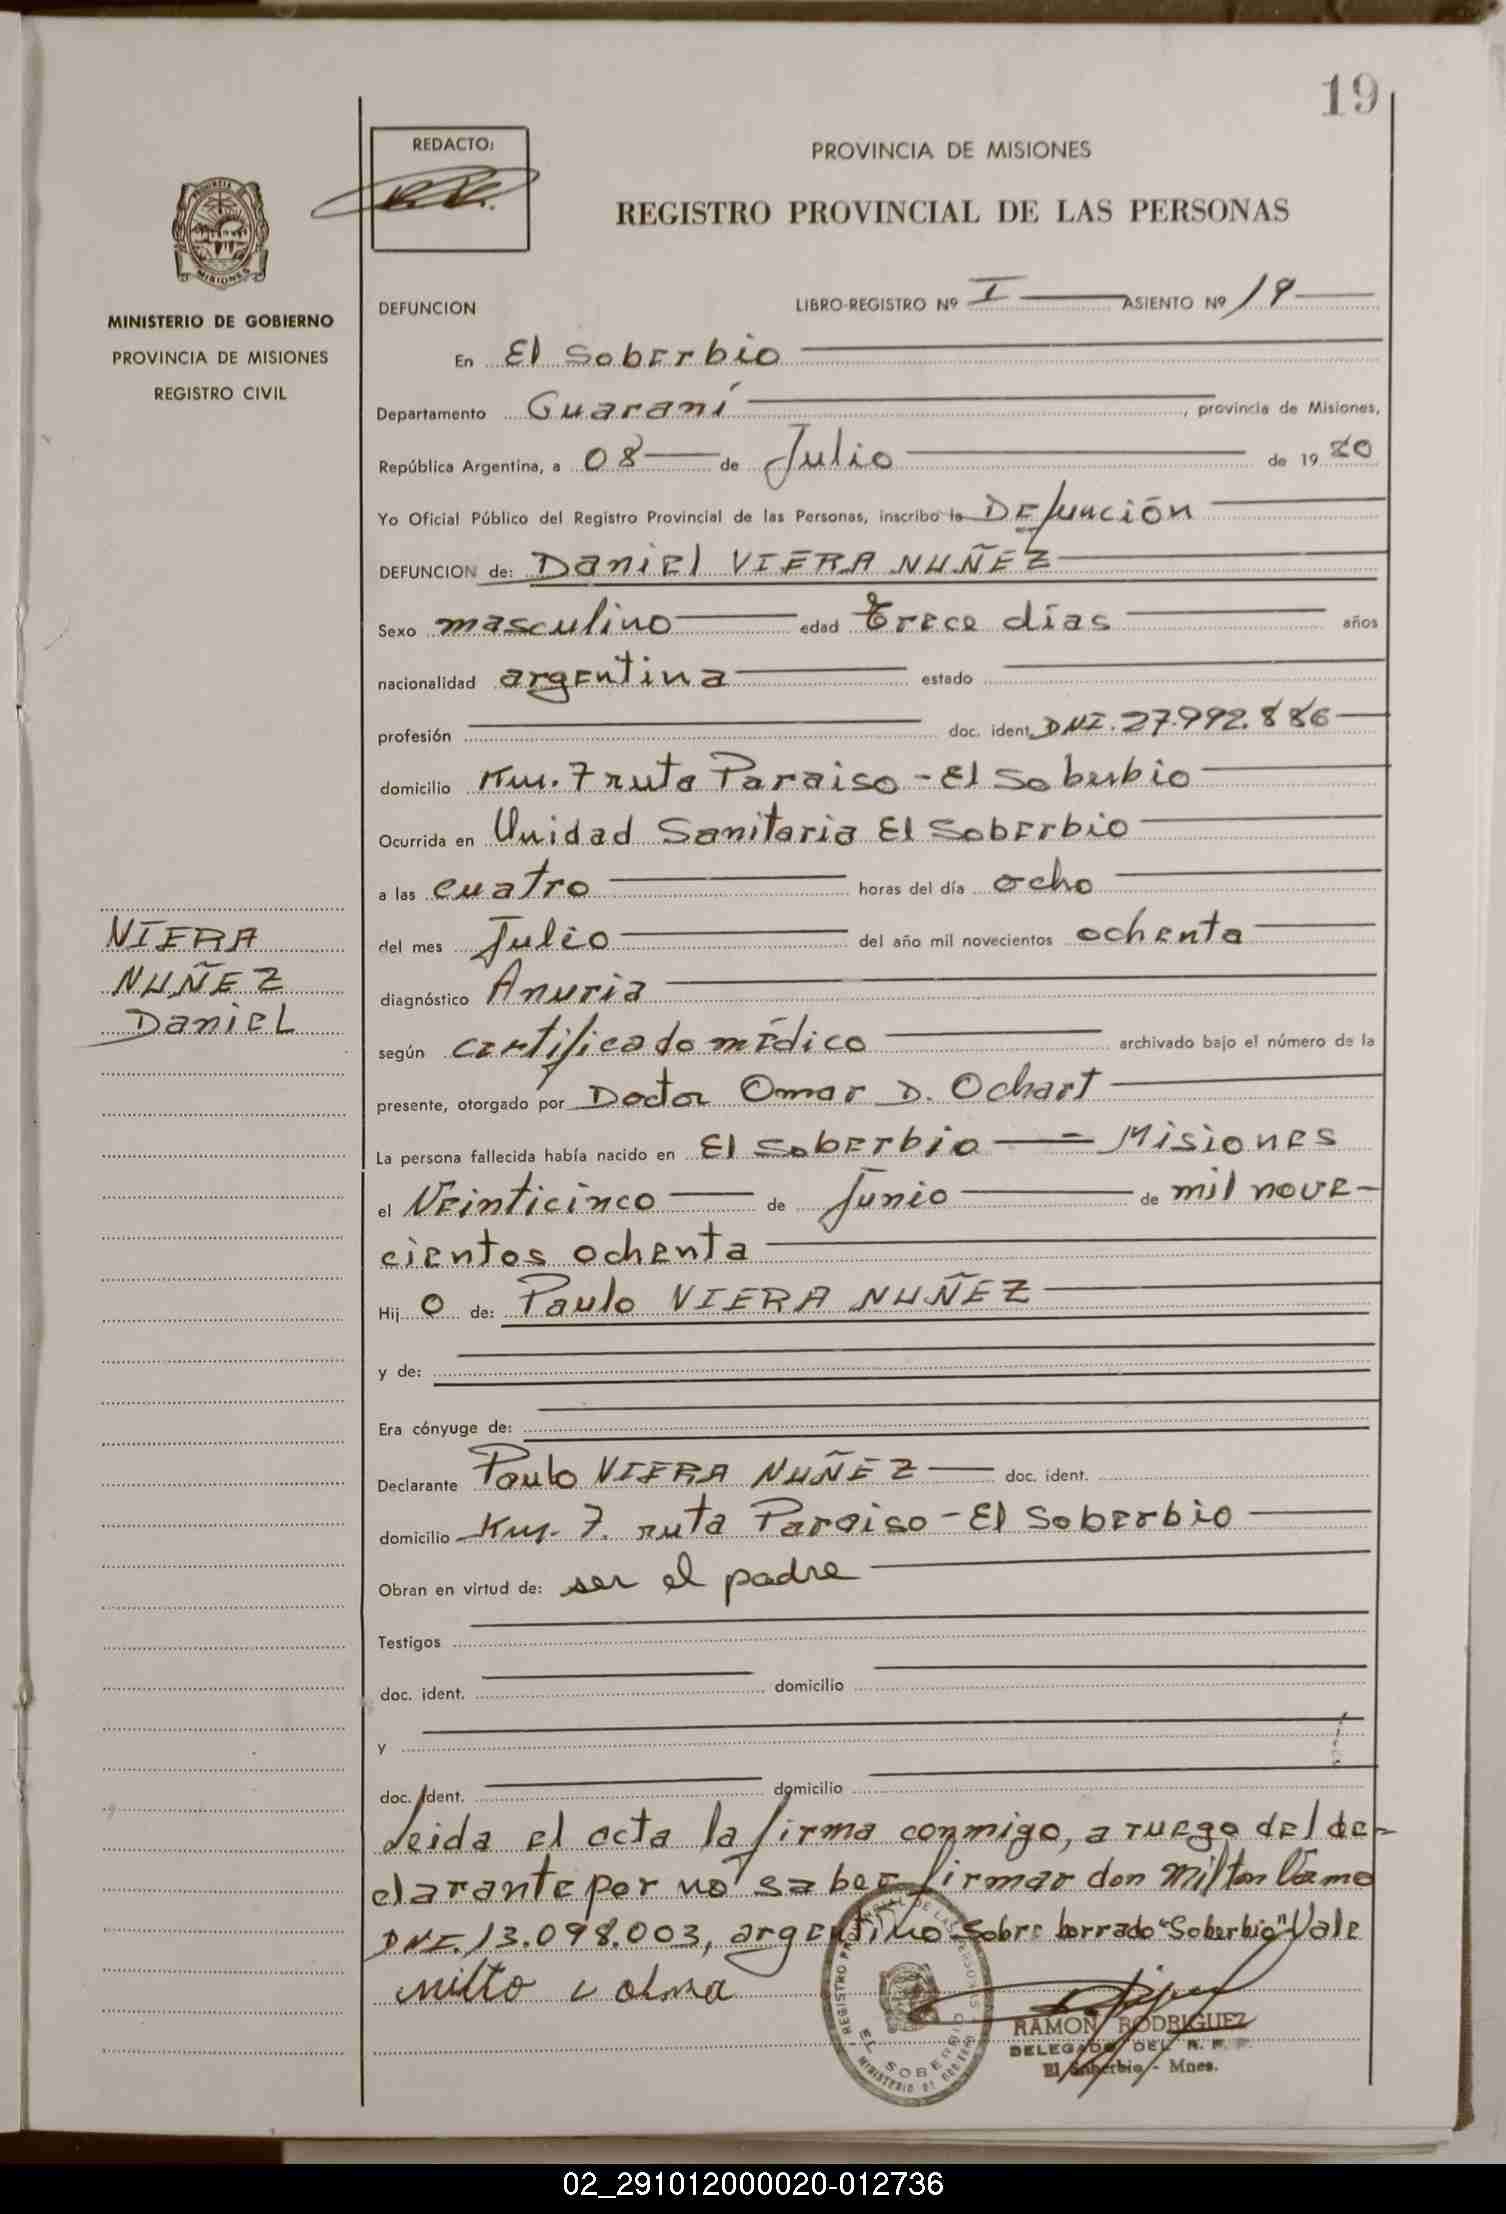 19
REDACTO:
PROVINCIA DE MISIONES
REGISTRO PROVINCIAL DE LAS PERSONAS
MISIONES
MINISTERIO DE GOBIERNO
PROVINCIA DE MISIONES
REGISTRO CIVIL
DEFUNCION LIBRO-REGISTRO Nº I ASIENTO Nº 19
En El Soberbio
Departamento Guaraní, provincia de Misiones,
República Argentina, a 08 de Julio de 1980
Yo Oficial Público del Registro Provincial de las Personas, inscribo la Defunción
DEFUNCION de: Daniel VIERA NUÑEZ
Sexo masculino edad trece días años
nacionalidad argentina estado
profesión doc. ident. DNI. 27.992.886
domicilio Km. 7 ruta Paraiso - El Soberbio
Ocurrida en Unidad Sanitaria El Soberbio
a las cuatro horas del día ocho
del mes Julio del año mil novecientos ochenta
VIERA
NUÑEZ
Daniel
diagnóstico Anuria
según certificado médico archivado bajo el número de la
presente, otorgado por Doctor Omar D. Ochart
La persona fallecida había nacido en El Soberbio - Misiones
el Veinticinco de Junio de mil nove-
cientos ochenta
Hij o de: Paulo VIERA NUÑEZ
y de:
Era cónyuge de:
Declarante Paulo VIERA NUÑEZ doc. ident.
domicilio Km. 7. ruta Paraiso - El Soberbio
Obran en virtud de: ser el padre
Testigos
doc. ident. domicilio
y
doc. ident. domicilio
Leida el acta la firma conmigo, a ruego del de-
clarante por no saber firmar don Milton
DNI. 13.098.003, argentino Sobre borrado "Soberbio" Vale
EL SOBERBIO
RAMON RODRIGUEZ
DELEGADO DEL R. P. P.
El Soberbio - Mnes.
02_291012000020-012736